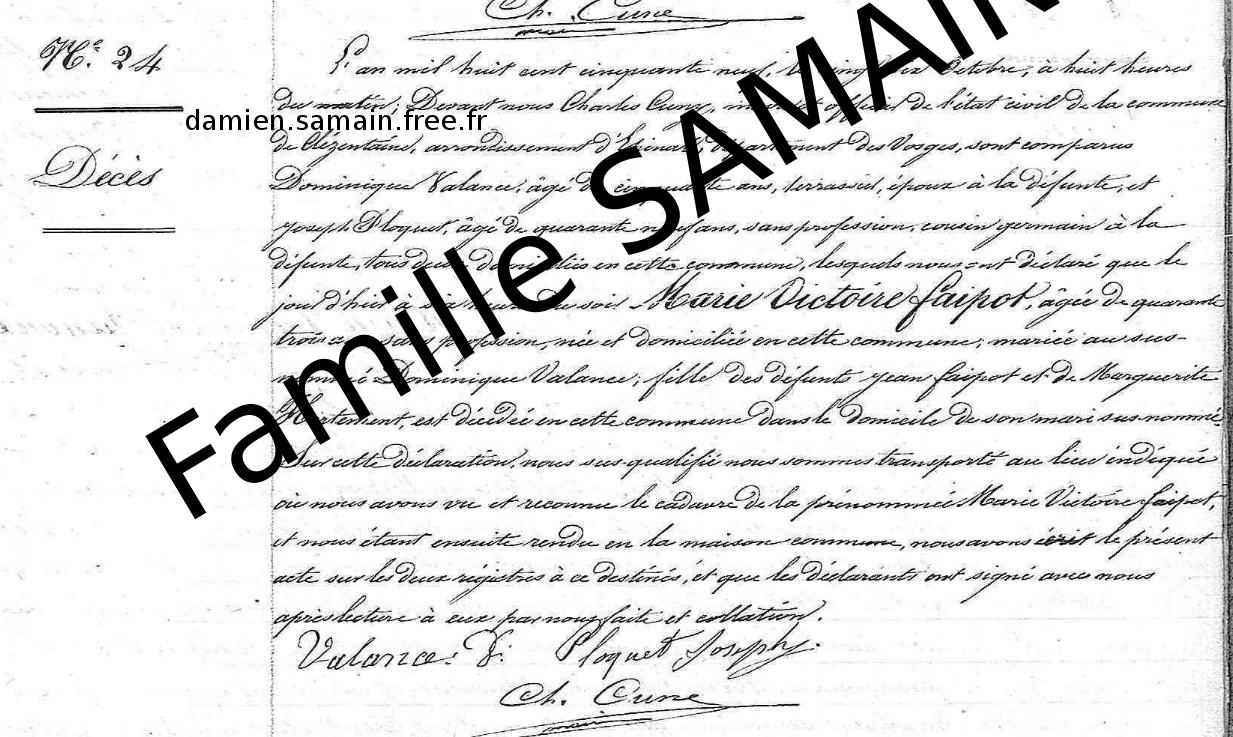 Ch. Cune
N.° 24
Décès
damien.samain.free.fr
Famille SAMAIN
L'an mil huit cent cinquante neuf, le Octobre, à huit heures
du matin; Devant nous Charles Cuny, officier de l'état civil de la commune
de Clézentaine, arrondissement d'Epinal, département des Vosges, sont comparus
Dominique Valance, âgé de cinquante ans, terrassier, époux à la défunte, et
Joseph Ploquet, âgé de quarante neuf ans, sans profession, cousin germain à la
défunte, tous deux domiciliés en cette commune, lesquels nous ont déclaré que le
jour d'hier à heures du soir Marie Victoire faipot, âgée de quarante
trois ans sans profession, née et domiciliée en cette commune, mariée au sus-
nommé Dominique Valance; fille des défunts jean faipot et de Marguerite
est décédée en cette commune dans le domicile de son mari sus nommé.
Sur cette déclaration, nous sus-qualifié nous sommes transporté au lieu indiqué
où nous avons vu et reconnu le cadavre de la prénommée Marie Victoire faipot,
et nous étant ensuite rendu en la maison commune, nous avons écrit le présent
acte sur les deux régistres à ce destinés, et que les déclarants ont signé avec nous
après lecture à eux par nous faite et collation.
Valance. D. Ploquet Joseph.
Ch. Cune